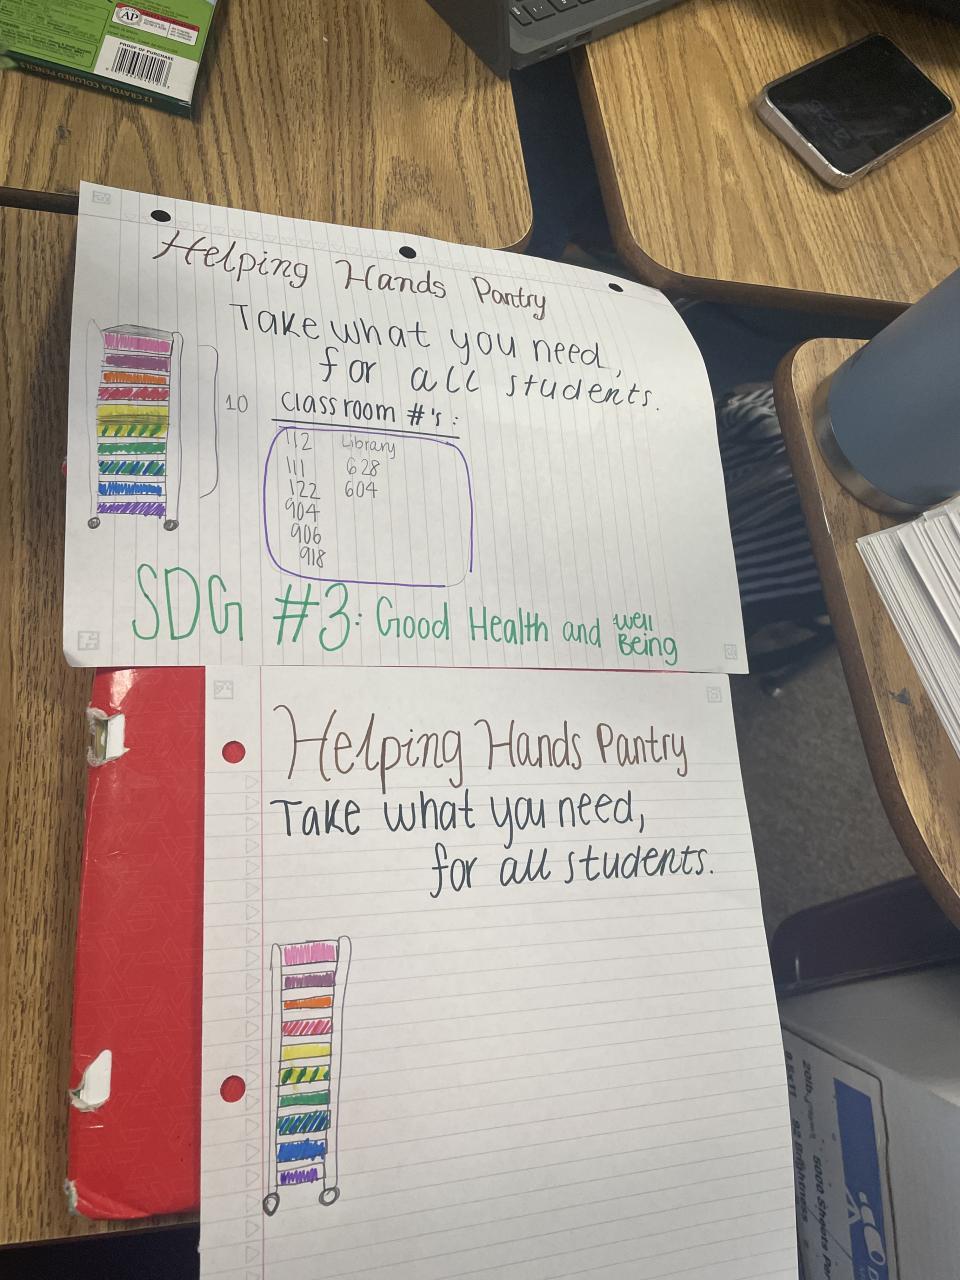 AP
PROOF OF PURCHASE
12 CRAYOLA COLORED PENCILS
Helping Hands Pantry
Take what you need,
for all students.
10
Classroom #'s:
112 Library
111 628
122 604
904
906
918
SDG #3: Good Health and well
Being
Helping Hands Pantry
Take what you need,
for all students.
5000 Sheets
92 Brightness